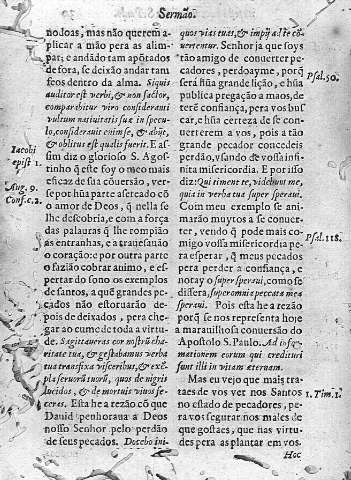 Sermão.
nodoas, mas não querem a-
plicar a mão pera as alim-
par; e andãdo tam apõtados
de fora, se deixão andar tam
feos dentro da alma. Siquis
auditor est verbi, & non factor,
comparabitur viro consideranti
vultum natiuitatis suæ in specu-
lo, considerauit enim se, & abijt,
& oblitus est qualis fuerit. E as-
sim diz o glorioso S. Ago-
stinho q̃ este foy o meo mais
eficaz de sua cõuersão, ver-
se por hũa parte asetado cõ
o amor de Deos, q̃ nella se
lhe descobria, e com a força
das palauras q̃ lhe rompião
as entranhas, e a trauesauão
o coração: e por outra parte
o fazião cobrar animo, e es-
pertar do sono os exemplos
de santos, a quẽ grandes pe-
cados não estoruarão de-
pois de deixados, pera che-
gar ao cume de toda a virtu-
de. Sagittaueras cor nostrũ cha-
ritate tua, & gestabamus verba
tua transfixa visceribus, & exẽ-
pla seruorũ tuorũ, quos de nigris
lucidos, & de mortuis viuos fe-
ceras. Esta he a rezão cõ que
Dauid penhoraua a Deos
nosso Senhor pelo perdão
de seus pecados. Docebo ini-
Iacobi
epist 1.
Aug. 9.
Conf. c. 2.
quos vias tuas, & impij ad te cõ-
uertentur. Senhor ja que soys
tão amigo de conuerter pe-
cadores, perdoayme, porq̃
será hũa grande lição, e hũa
publica pregação a maos, de
terẽ confiança, pera vos bus-
car, e hũa certeza de se con-
uerterem a vos, pois a tão
grande pecador concedeis
perdão, vsãdo de vossa infi-
nita misericordia. E por isso
diz: Qui timent te, videbunt me,
quia in verba tua super speraui.
Com meu exemplo se ani-
marão muytos a se conuer-
ter, vendo q̃ pode mais co-
migo vossa misericordia pe-
ra esperar, q̃ meus pecados
pera perder a confiança, e
notay o super speraui, como se
dissera, super omnia peccata mea
speraui. Pois esta he a rezão
porq̃ se nos representa hoje
a marauilhosa conuersão do
Apostolo S. Paulo. Ad infor-
mationem eorum qui credituri
sunt illi in vitam æternam.
Mas eu vejo que mais tra-
taes de vos ver nos Santos
no estado de pecadores, pe-
ra vos segurar nos males de
que gostaes, que nas virtu-
des pera as plantar em vos.
Hoc
Psal. 50.
Psal. 118.
1. Tim. 1.